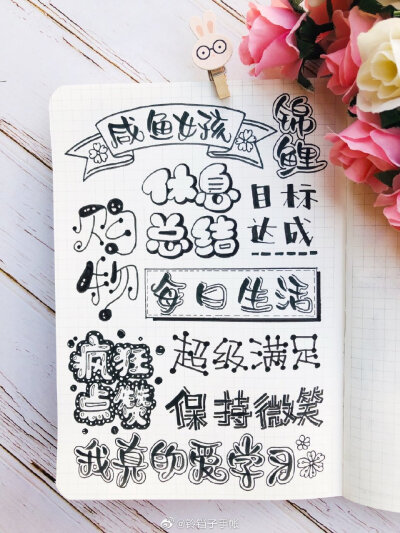 咸鱼女孩
锦鲤
休息
总结
目标
达成
购物
每日生活
疯狂
点赞
超级满足
保持微笑
我真的爱学习
@铃铛子手帐